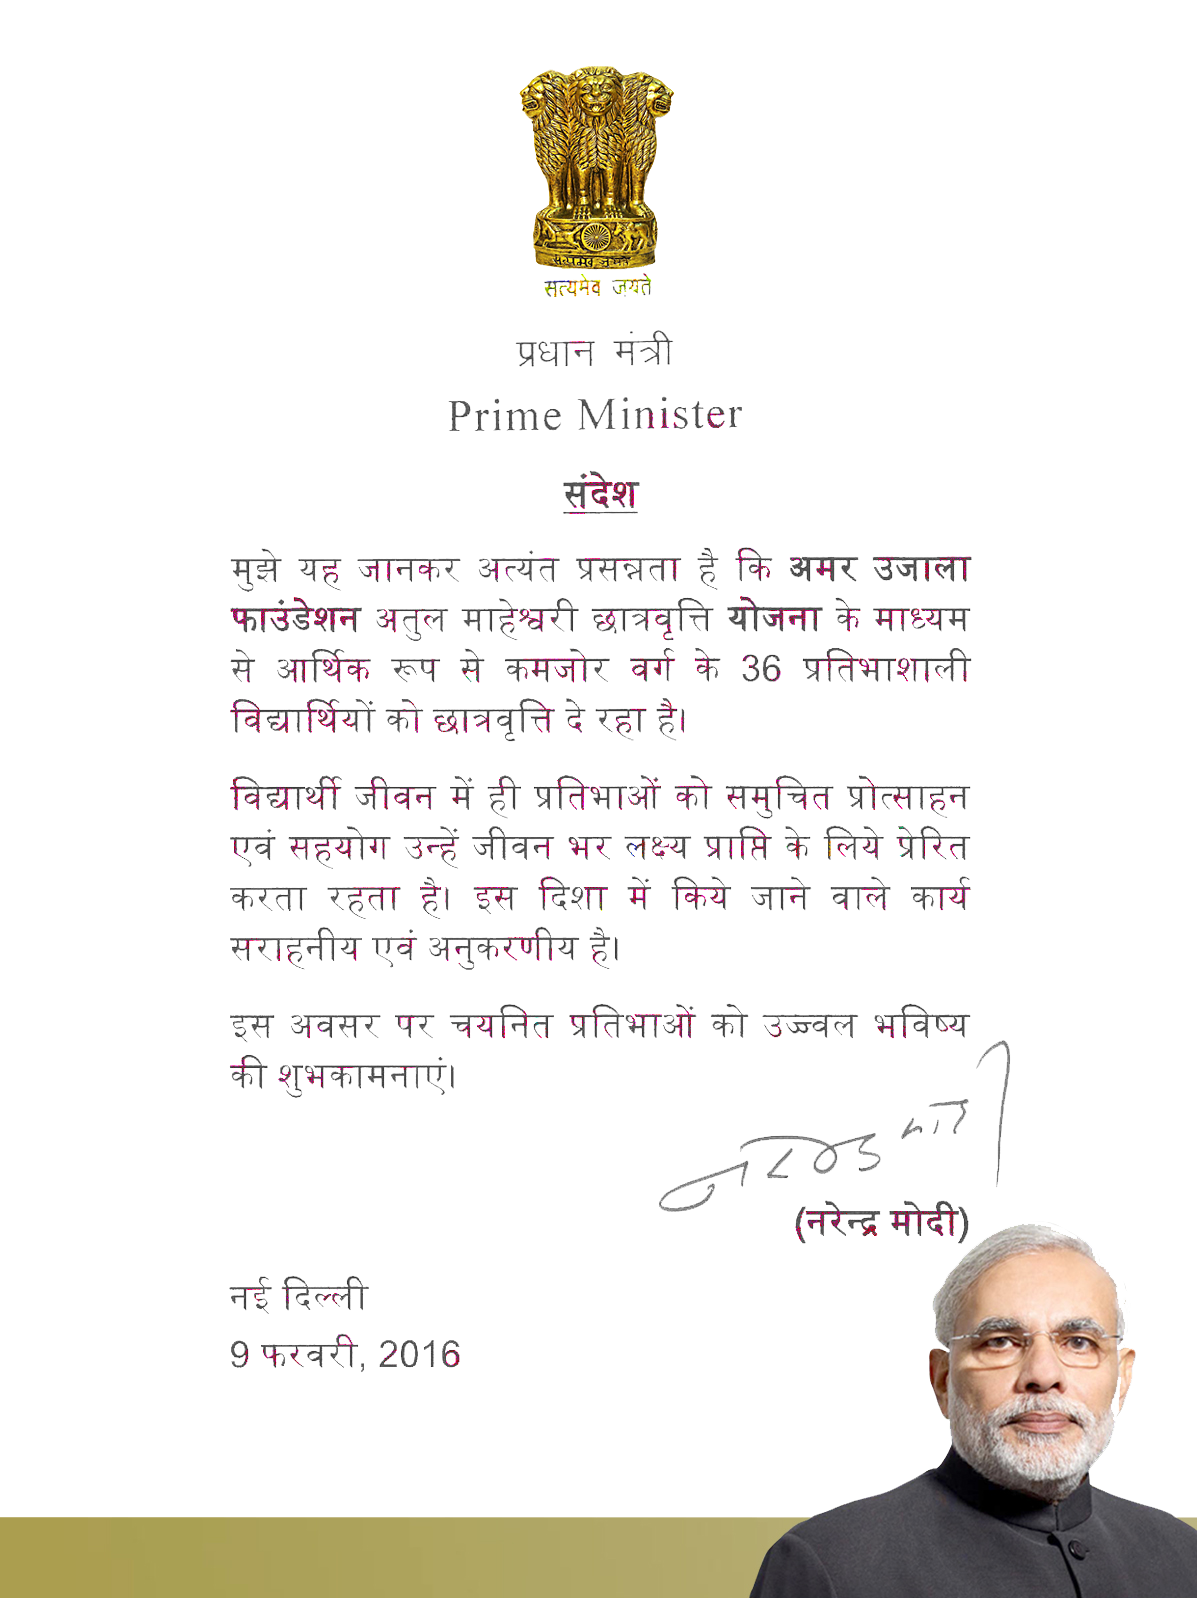 सत्यमेव जयते
सत्यमेव जयते
प्रधान मंत्री
Prime Minister
संदेश
मुझे यह जानकर अत्यंत प्रसन्नता है कि अमर उजाला
फाउंडेशन अतुल माहेश्वरी छात्रवृत्ति योजना के माध्यम
से आर्थिक रूप से कमजोर वर्ग के 36 प्रतिभाशाली
विद्यार्थियों को छात्रवृत्ति दे रहा है।
विद्यार्थी जीवन में ही प्रतिभाओं को समुचित प्रोत्साहन
एवं सहयोग उन्हें जीवन भर लक्ष्य प्राप्ति के लिये प्रेरित
करता रहता है। इस दिशा में किये जाने वाले कार्य
सराहनीय एवं अनुकरणीय है।
इस अवसर पर चयनित प्रतिभाओं को उज्ज्वल भविष्य
की शुभकामनाएं।
नरेन्द्र मोदी
(नरेन्द्र मोदी)
नई दिल्ली
9 फरवरी, 2016